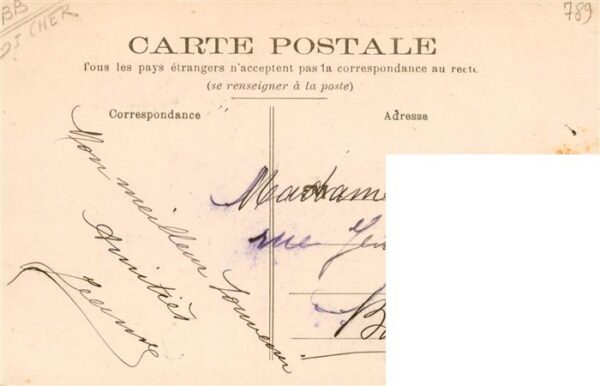 BB
CHER
789
CARTE POSTALE
Tous les pays étrangers n'acceptent pas la correspondance au recto
(se renseigner à la poste)
Correspondance
Adresse
Mon meilleur souvenir
Amitiés
Madame
rue